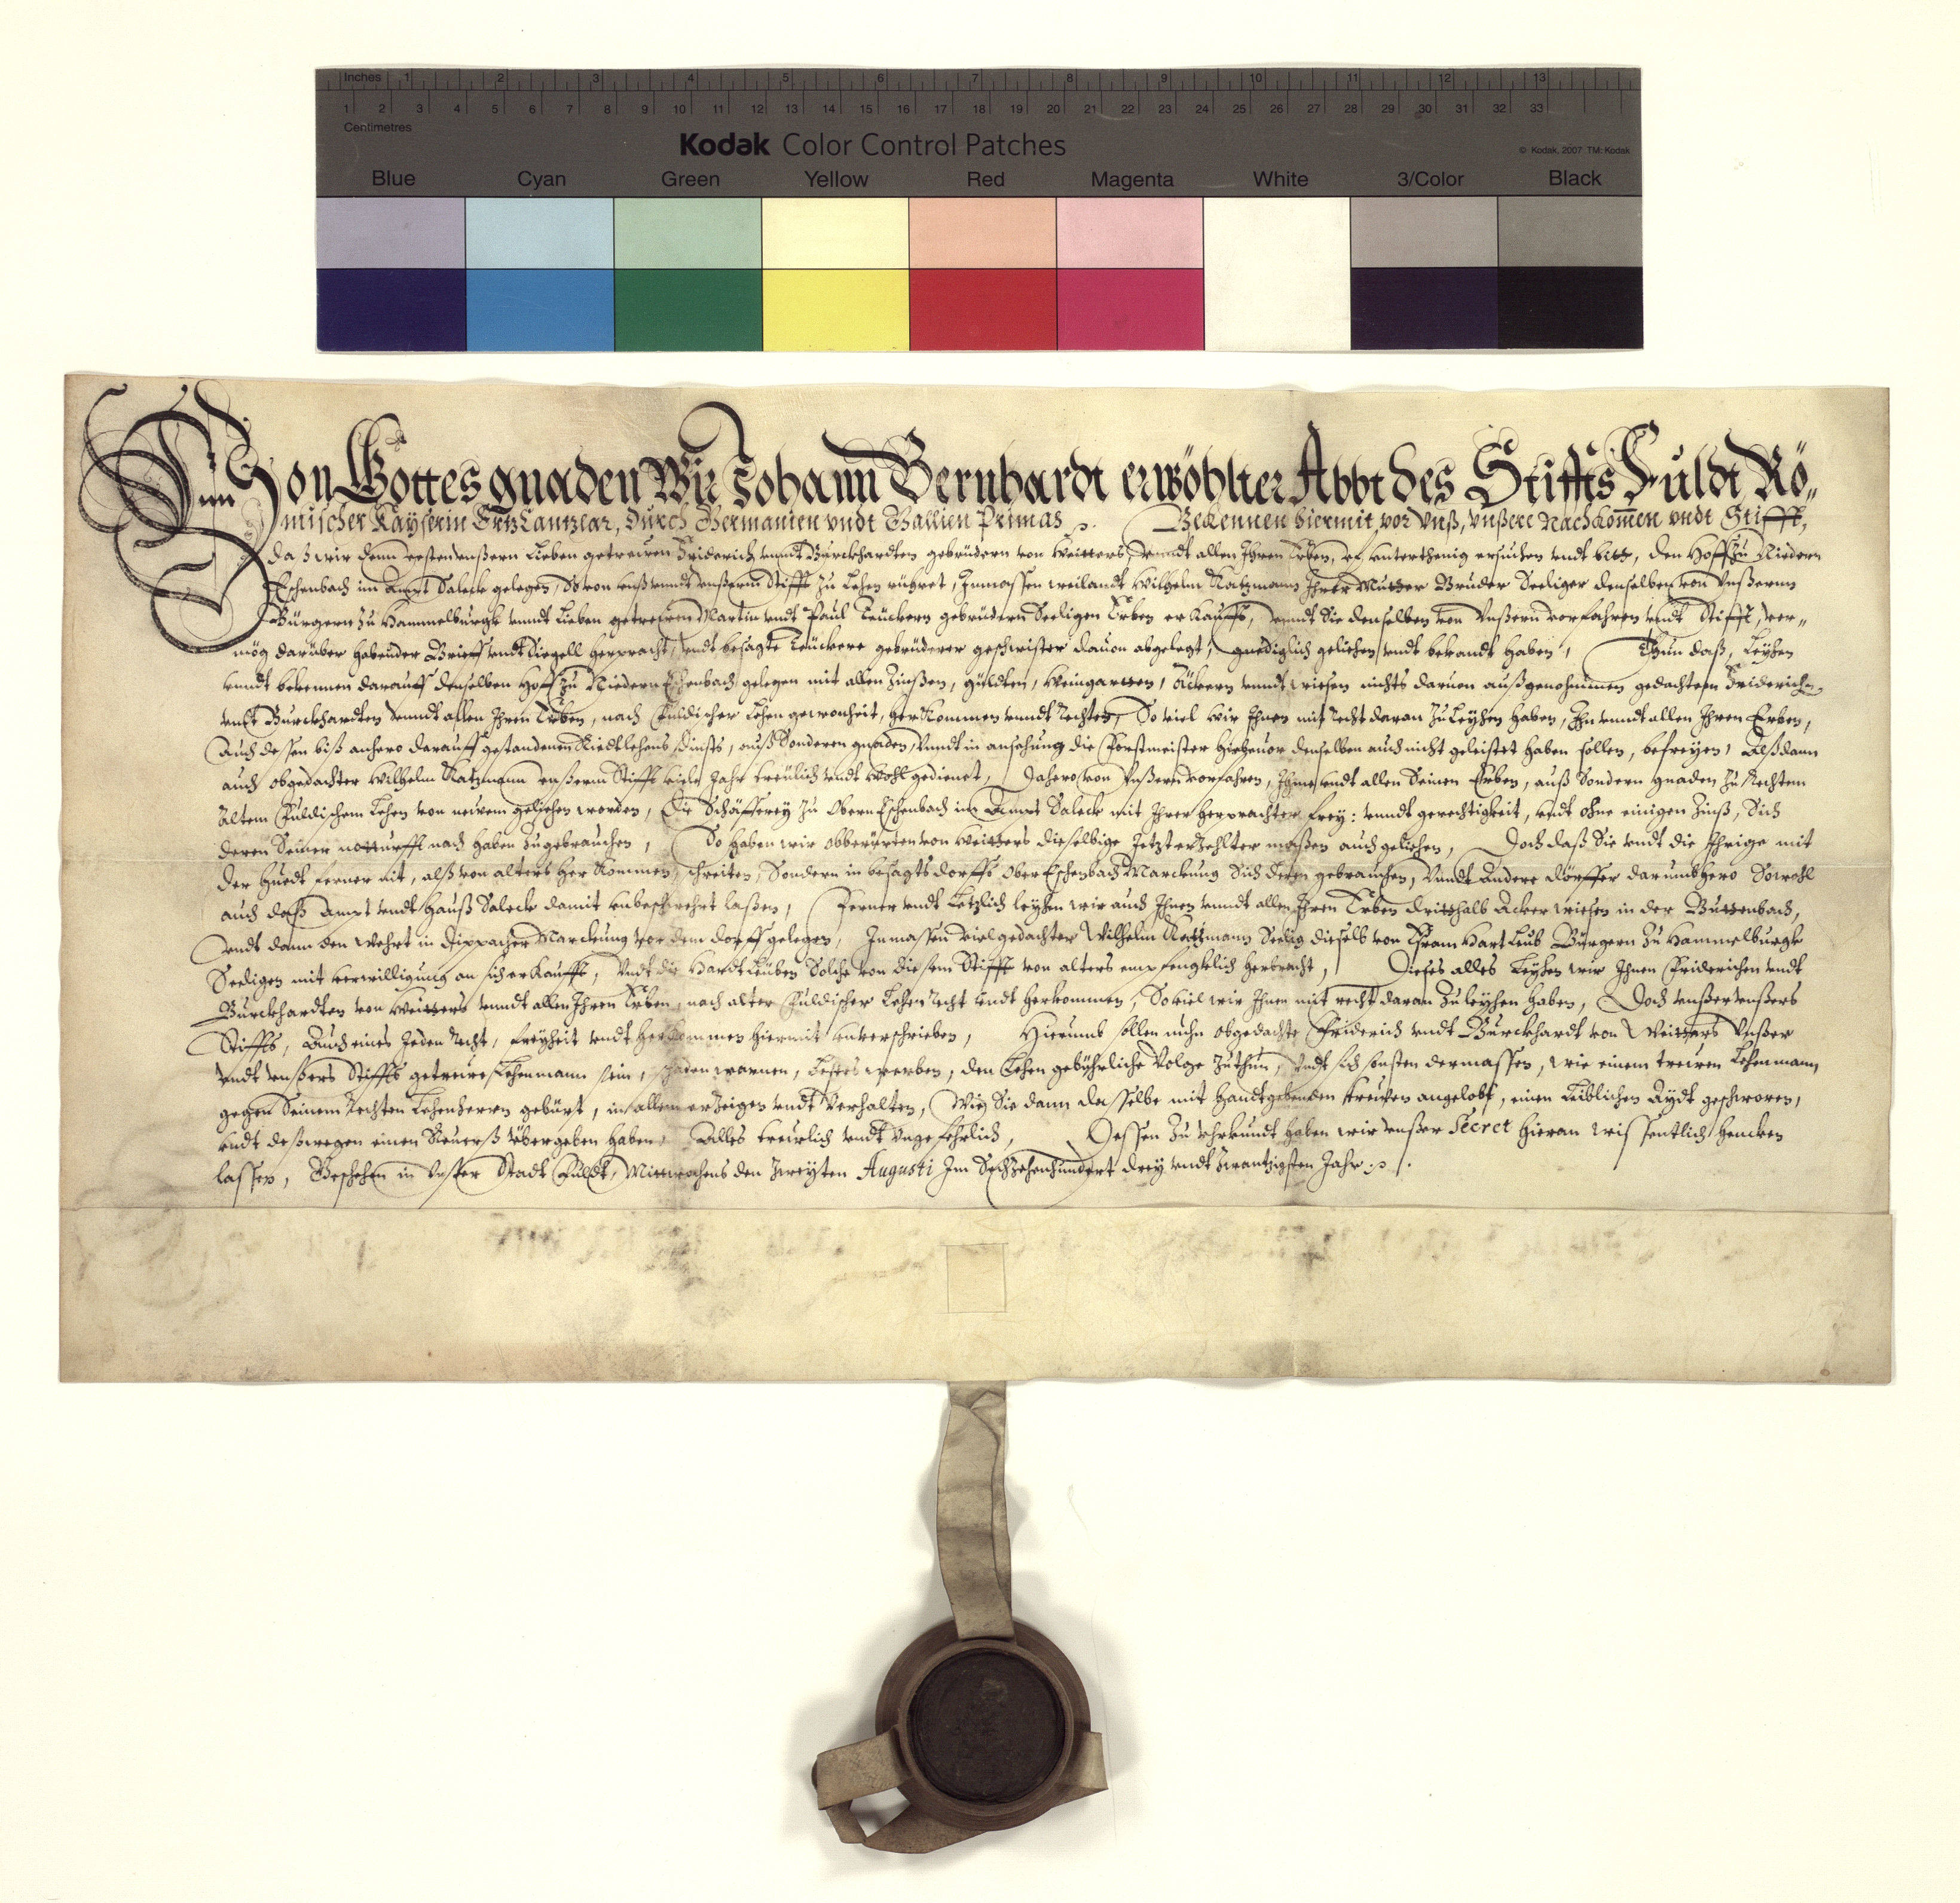 Inches 1 2 3 4 5 6 7 8 9 10 11 12 13
1 2 3 4 5 6 7 8 9 10 11 12 13 14 15 16 17 18 19 20 21 22 23 24 25 26 27 28 29 30 31 32 33
Centimetres
Kodak Color Control Patches
© Kodak, 2007 TM: Kodak
Blue Cyan Green Yellow Red Magenta White 3/Color Black
Von Gottes gnaden Wir Johann Bernhardt erwöhlter Abbt des Stiffts Fuldt Rö„
mischer Kayserin Ertz Cantzlar, durch Germanien vndt Gallien Primas p. Bekennen hiermit vor vnß, vnßere Nachkom̄en vndt Stifft,
daß wir denn vesten vnßern Lieben getrewen Friderich vnndt Burckhardten gebrüdern von Weitters, vnndt allen Ihren Erben, vf vnterthenig ersuchen vndt bitt, den Hoff zu Niedern
Eschenbach im Ampt Saleck gelegen, so von vnß vnndt vnßerm Stifft zu Lehen rühret, Inmassen weilandt Wilhelm Katzmann Ihrer Mutter Bruder Seeliger denselben von Vnßerm
Bürgern zu Hammelburgk vnndt Lieben getrewen Martin vndt Paul gebrüdern Seeligen Erben erkaufft, vnndt Sie denselben von Vnßern vorfahren vndt Stifft, ver„
mög darüber habender Brieff vndt Siegell herpracht, vndt besagte gebrüderer geschwister dauon abgelegt, gnediglich geliehen vndt bekandt haben, Thun daß, Leyhen
vnndt bekennen darauff denselben Hoff zu Niedern Eschenbach gelegen mit allen Zinßen, gülden, Weingarten, Äckern vnndt wiesen nichts daruon außgenohmmen gedachtem Friderichen
vndt Burckhardten vnndt allen Ihren Erben, nach Fuldischer Lehen gewonheit, herkommen vnndt Rechten, So viel wir Ihnen mit Recht daran zu Leyhen haben, Ihn vnndt allen Ihren Erben,
Auch dessen biß anhero darauff gestandenen Riedtlehens dinsts, auß Sonderen gnaden, vnndt in ansehung die Forstmeister hiebeuor denselben auch nicht geleistet haben sollen, befreyen, Alß dann
auch obgedachter Wilhelm Katzmann vnßerm Stifft viele Jahr treulich vndt wohl gedienet, dahero von Vnßern vorfahren, Ihme vndt allen Seinen Erben, auß Sondern gnaden zu Rechtem
Altem Fuldischem Lehen von newem geliehen worden, die Schäfferey zu Obern Eschenbach im Ampt Saleck mit Ihrer herprachter frey: vnndt gerechtigkeit, vndt ohne einigen Zinß, Sich
deren Seiner notturfft nach haben zugebrauchen, So haben wir obberürten von Weitters dieselbige Jetzt erzehlter maßen auch geliehen, Doch daß Sie vndt die Ihrige mit
der huedt ferner nit, alß von alters her kommen, schreiten, Sondern in besagts dorffs Ober Eschenbach Marckung Sich deren gebrauchen, Vnndt andere dörffer darumbhero Sowohl
auch daß Ampt vndt hauß Saleck damit vnbeschwehrt laßen, Ferner vndt Letzlich leyhen wir auch Ihnen vnndt allen Ihren Erben dritthalb Acker wiesen in der Buttenbach,
vndt dann den Wehrt in Dippacher Marckung vor dem dorff gelegen, Inmassen vielgedachter Wilhelm Katzmann Seelig dieselb von Hart Leub Bürgern zu Hammelburgk
Seeligen mit verwilligung an sich erkaufft, Vndt die Hardt Leuben Solche von diesem Stifft von alters empfengklich herbracht, Dieses alles Leyhen wir Ihnen Friderichen vndt
Burckhardten von Weitters vnndt allen Ihren Erben, nach alter Fuldischer Lehen Recht vndt herkommen, So viel wir Ihnen mit recht daran zu leyhen haben, Doch vnßer vnßers
Stiffts, Auch eines Jeden Recht, freyheit vndt herkommen hiermit vnuerschrieben, Hierumb sollen nuhn obgedachte Friderich vndt Burckhardt von Weitters Vnßer
vndt vnßers Stiffts getrewe Lehenmann sein, schaden warnen, bestes werben, den Lehen gebührliche Volge zuthun, vndt sich sonsten dermassen, wie einem trewen Lehenmann,
gegen Seinem Rechten Lehenherrn gebürt, in allem erzeigen vndt Verhalten, Wie Sie dann dasselbe mit handtgebenden trewen angelobt, einen Leiblichen Aydt geschworen,
vndt deßwegen einen Reuerß vbergeben haben, Alles treulich vndt vngefehrlich, Dessen zu vhrkundt haben wir vnßer Secret hieran wissentlich hencken
lassen, Geschehen in vnßer Stadt Fuldt, Mittwochens den zweyten Augusti Im Sechzehenhundert drey vndt zwantzigsten Jahr